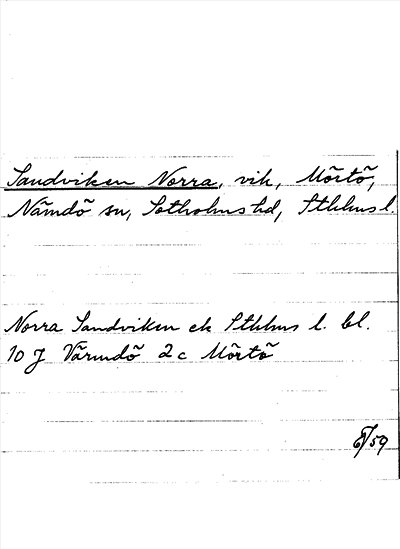 Sandviken Norra, vik, Mörtö,
Nämdö sn, Sotholms hd, Sthlms l.
Norra Sandviken ek Sthlms l. bl.
10 J Värmdö 2c Mörtö
/59